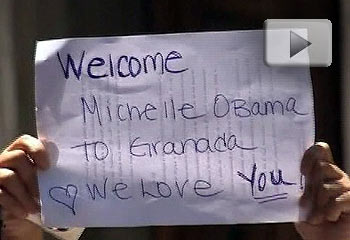 Welcome
Michelle OBama
TO Granada
We Love You!